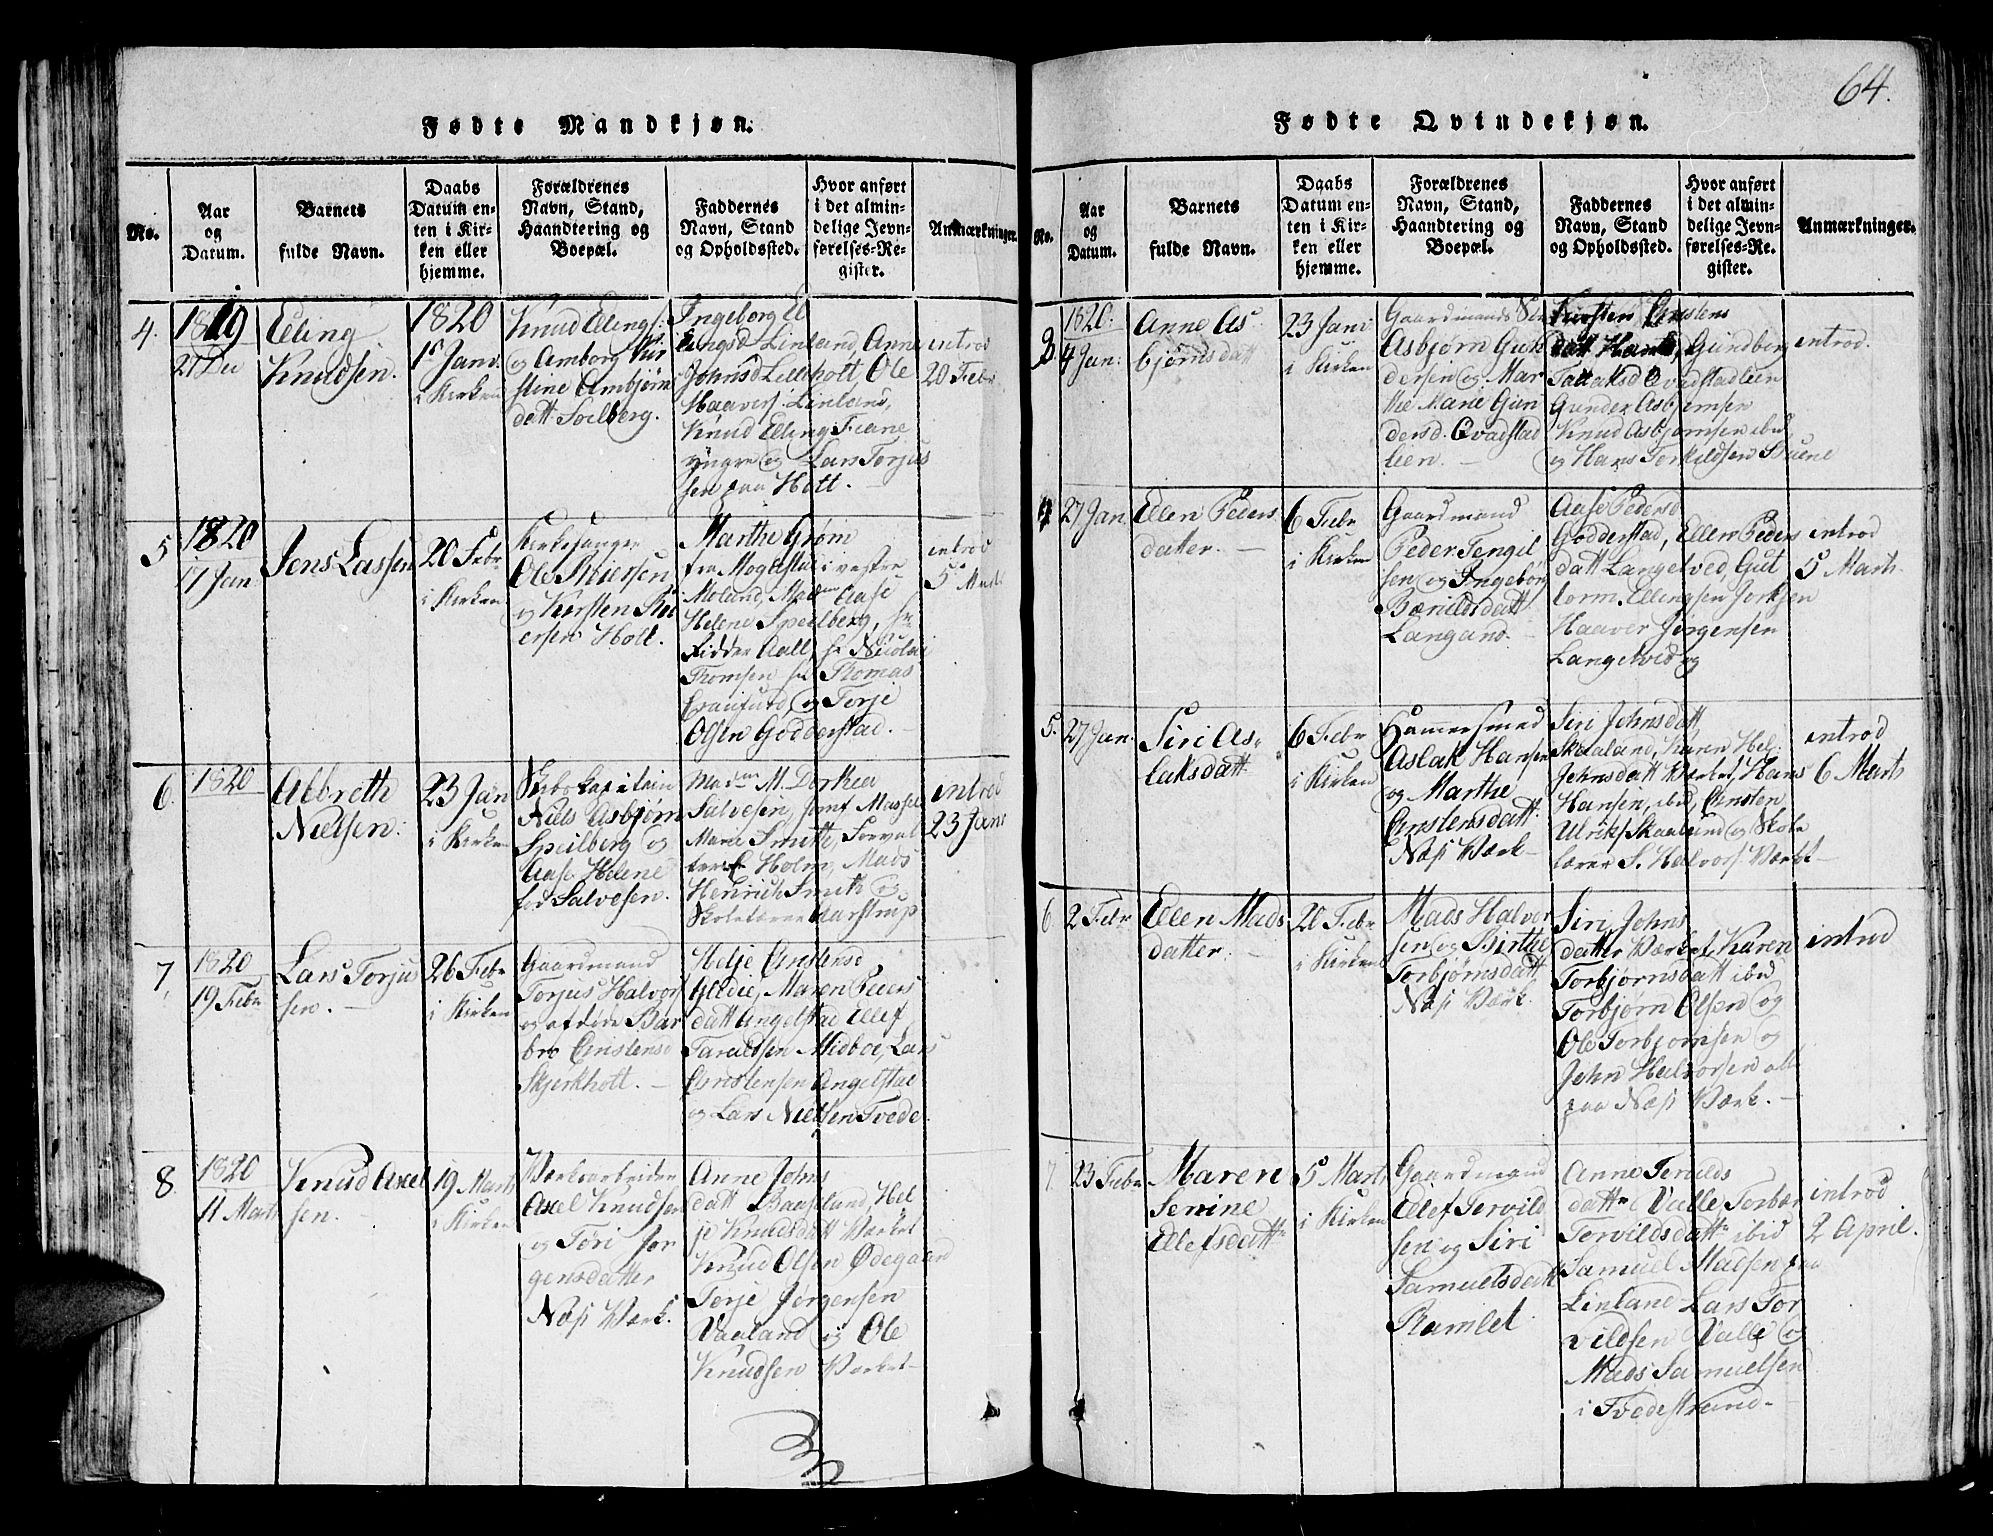 64.
Fødte Mandkjøn.
No.
Aar
og
Datum.
Barnets
fulde Navn.
Daabs
Datum en-
ten i Kir-
ken eller
hjemme.
Forældrenes
Navn, Stand,
Haandtering og
Boepæl.
Faddernes
Navn, Stand
og Opholdssted.
Hvor anført
i det almin-
delige Jevn-
førelses-Re-
gister.
Anmærkninger.
4.
1819
27 Dec
Elling
Knudsen.
1820
1 Janv
i Kirken
Knud Ellings:
og Amborg Kir
stine Ambjørns
datt: Soelberg.
Ingeborg El
lingsd Linland, Anne
Johnsd Lilleholt, Ole
Haavers: Linland,
Knud Elling Fiane
yngre og Lars Torjus
sen paa Holt. -
introd
20 Febr
5
1820
17 Jan
Jens Lassen
20 Febr
i Kirken
Kirkesanger
Ole Reiersen
og Kirsten Rei
ersen Holt.
Marthe Grøm
fra Moglestue i vestre
Moland, Madm Aase
Helene Speilberg, hr
Ridder Aall, hr Nicolai
Thomsen hr Thomas
Craufurd, og Torje
Olsen Godderstad. -
introd
5 Marts
6.
1820
Albreth
Nielsen:
23 Jan
i Kirken
Skibskapitain
Niels Asbjørn
Speilberg og
Aase Helene
fød Salvesen.
Madm M. Dorthea
Salvesen, Jomf Masse
Marie Smith, Forval
ter E Holm, Mads
Henrich Smith og
Skolelærer Aarstrup
introd
23 Jan:
7.
1820
19 Febr
Lars Torjus
sen. -
26 Febr
i Kirken
Gaardmand
Torjus Halvors
og afdøde Bar
bro Christensd
Skjerkholt. -
Helje Christensd
Glidie, Maren Peers
datt Angelstad Ellef
Taraldsen Midboe, Lars
Christensen Angelstad
og Lars Nielsen Tvede.
8.
1820
11 Marts
Knud Axel
sen. -
19 Marts
i Kirken
Værksarbeider
Axel Knudsen
og Tori Jør
gensdatter
Næs Værk.
Anne Johns
datt Baaseland, Hel
je Knudsdatt Værket
Knud Olsen Ødegaard
Torje Jørgensen
Vaaland og Ole
Knudsen Værket-
Fødte Qvindekjøn.
No.
Aar
og
Datum.
Barnets
fulde Navn.
Daabs
Datum en-
ten i Kir-
ken eller
hjemme.
Forældrenes
Navn, Stand,
Haandtering og
Boepæl.
Faddernes
Navn, Stand
og Opholdssted.
Hvor anført
i det almin-
delige Jevn-
førelses-Re-
gister.
Anmærkninger.
3
1820:
4 Jan:
Anne As
bjørnsdatt
23 Jan:
i Kirken
Gaardmands Søn
Asbjørn Gun
dersen og Mar
the Marie Gun
dersd. Qvadstad
leen. -
Kirsten Christens
datt Hante, Gundborg
Tallaksd Qvadstadleen
Gunder Asbjørnsen
Knud Asbjørnsen ibid
og Hans Torkildsen Bruene
introd.
4
27 Jan.
Ellen Peders
datter. -
6 Febr
i Kirken
Gaardmand
Peder Tengel
sen og Ingeborg
Bænildsdatt
Langand. -
Aase Pedersd
Godderstad, Ellen Peders
datt Langetved Gut
torm Ellingsen
Haaver Jørgensen
Langetved og
introd
5 Marts
5.
27 Jan.
Siri As,
laksdatt.
6 Febr
i Kirken
Hammersmed
Aslak Hansen
og Marthe
Christensdatt.
Næs Værk-
Siri Johnsdatt
Skaaland, Karen Hel:
Johnsdatt Værket, Hans
Hansen, ibid, Christen
Ulriks Skaaland og Skole
lærer S. Halvors: Værket-
introd
6 Marts
6.
2 Febr
Ellen Mads
datter. -
20 Febr
i Kirken
Mads Halvor
sen og Birthe
Torbjørnsdatt
Næs Værk.
Siri Johns
datter Værket, Karen
Torbjørnsdatt ibid
Torbjørn Olsen og
Ole Torbjørnsen og
John Halvorsen alle
paa Næs Værk. -
introd
7.
23 Febr
Maren
Serine
Ellefsdattr
5 Marts
i Kirken
Gaardmand
Ellef Tervild
sen og Siri
Samuelsdatt
Ramlet
Anne Tervilds
dattr Valle Torbør
Tervildsdattr ibid
Samuel Madsen paa
Linland Lars Tor
vildsen Valle og
Mads Samuelsen
i Tvedestrand.-
introd
2 April.